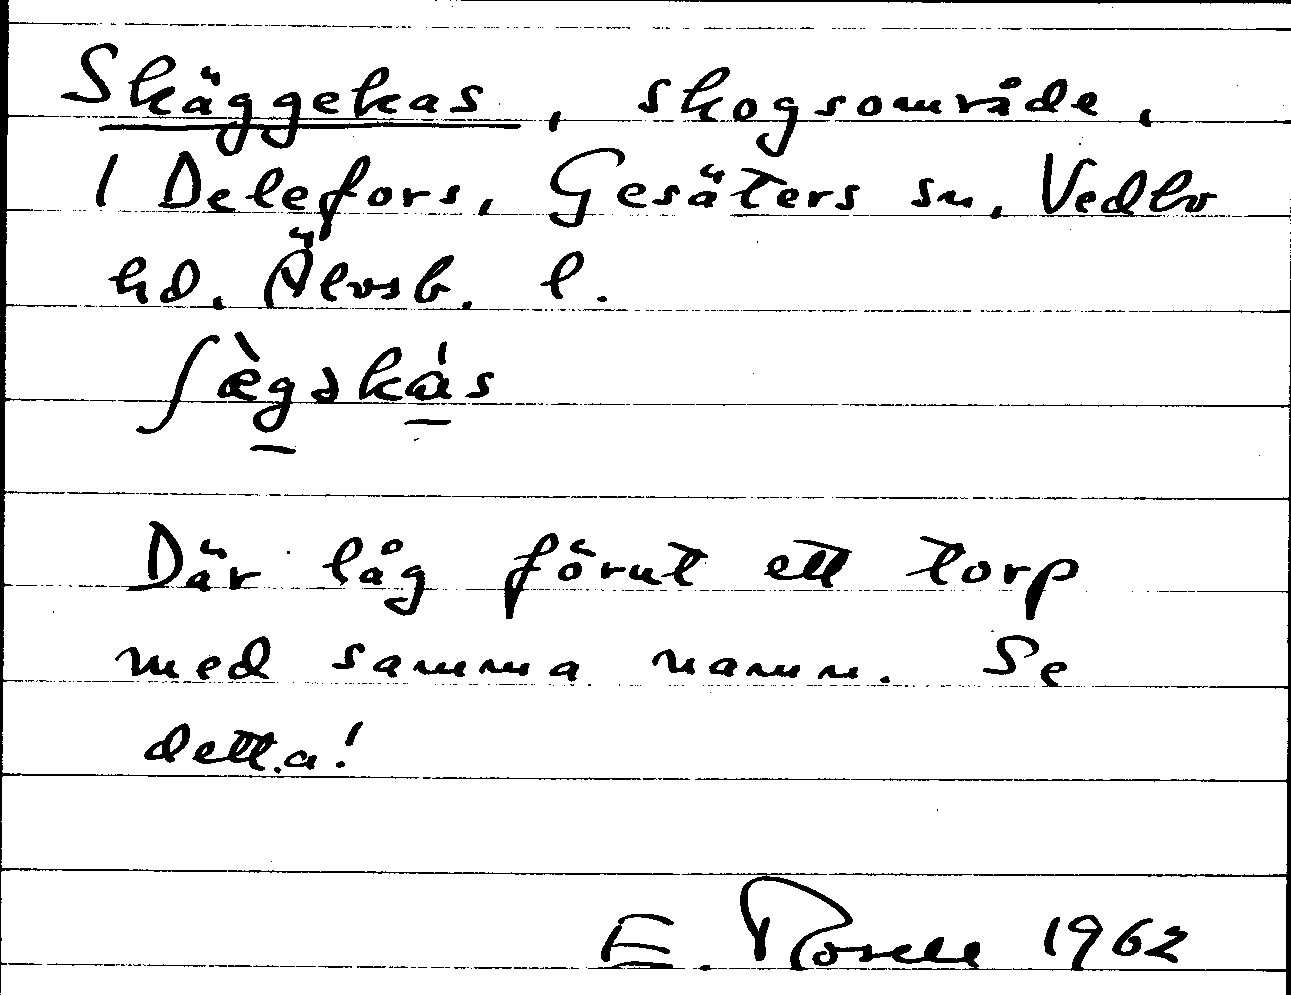 Skäggekas, skogsområde,
1 Delefors, Gesäters sn, Vedbo
hd. Älvsb. l.
ʃæ̀gəkás
Där låg förut ett torp
med samma namn. Se
detta!
E. Rosell 1962